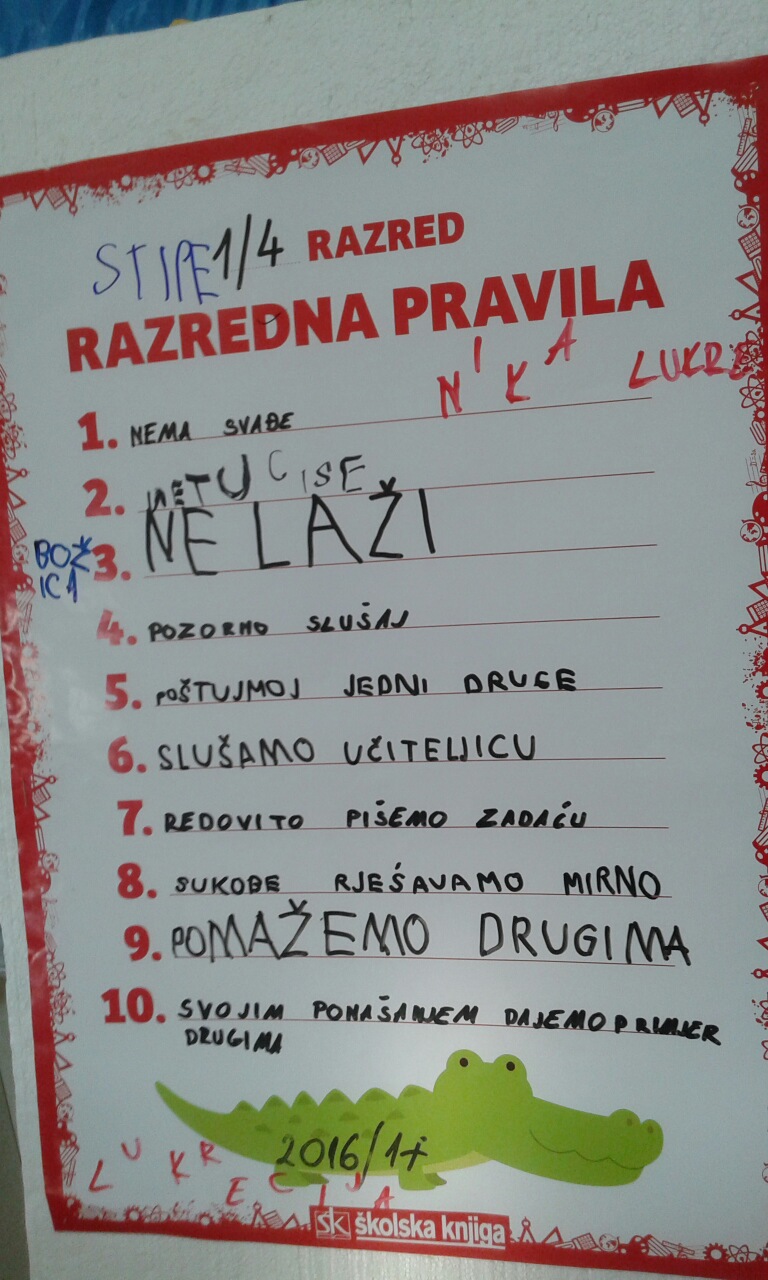 STIPE 1/4 RAZRED
RAZREDNA PRAVILA
NIKA LUKRE
1. NEMA SVAĐE
2. NETUCISE
BOŽICA
3. NE LAŽI
4. POZORNO SLUŠAJ
5. POŠTUJMOJ JEDNI DRUGE
6. SLUŠAMO UČITELJICU
7. REDOVITO PIŠEMO ZADAĆU
8. SUKOBE RJEŠAVAMO MIRNO
9. POMAŽEMO DRUGIMA
10. SVOJIM PONAŠANJEM DAJEMO PRIMJER
DRUGIMA
2016/17
LUKRECIJA
ŠK školska knjiga